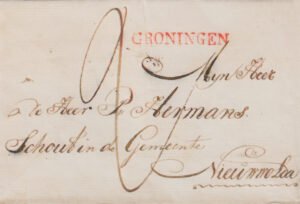 GRONINGEN
Mijn Heer
de Heer P. Hermans
Schout in de Gemeente
Nieuwolda